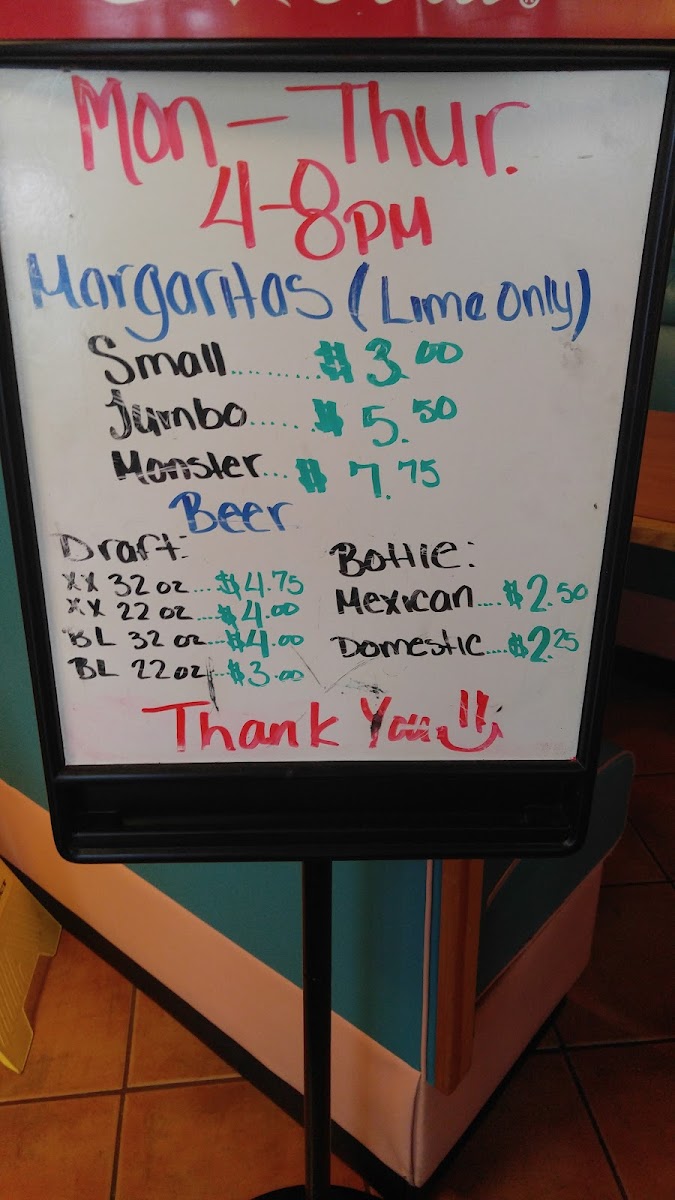 Mon - Thur.
4-8PM
Margaritas (Lime only)
Small.........$3.00
Jumbo......$5.50
Monster...$7.75
Beer
Draft:
XX 32 oz...$4.75
XX 22 oz...$4.00
BL 32 oz...$4.00
BL 22 oz...$3.00
Bottle:
Mexican....$2.50
Domestic....$2.25
Thank You!!